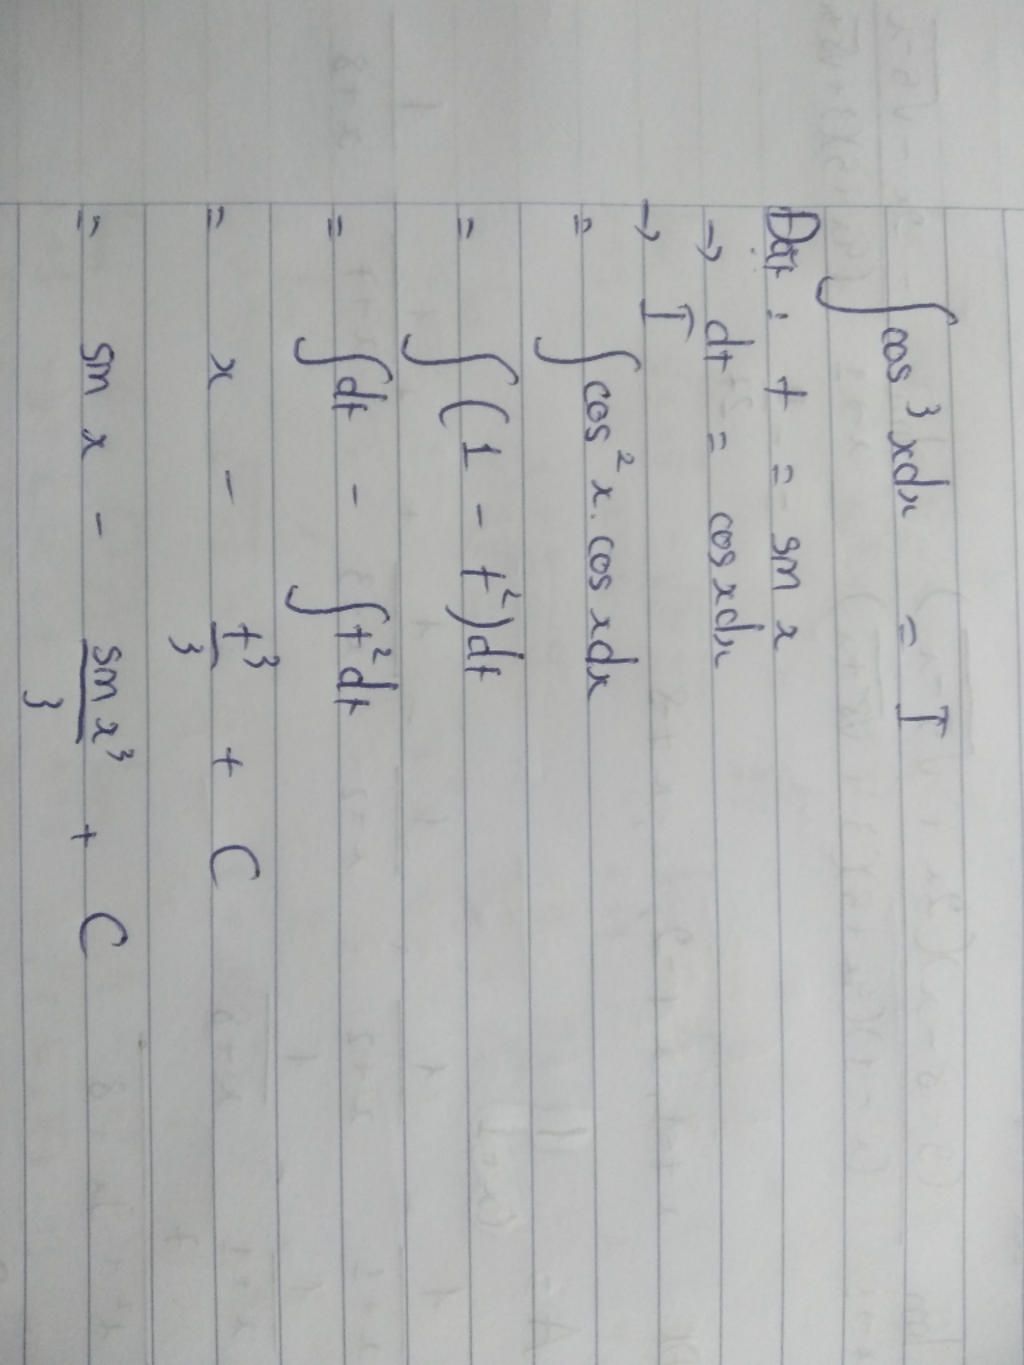 ∫ cos³ x dx = I
Đặt : t = sin x
→ dt = cos x dx
→ I
= ∫ cos² x . cos x dx
= ∫ (1 - t²) dt
= ∫ dt - ∫ t² dt
= x - t³/3 + C
= sin x - sin x³/3 + C